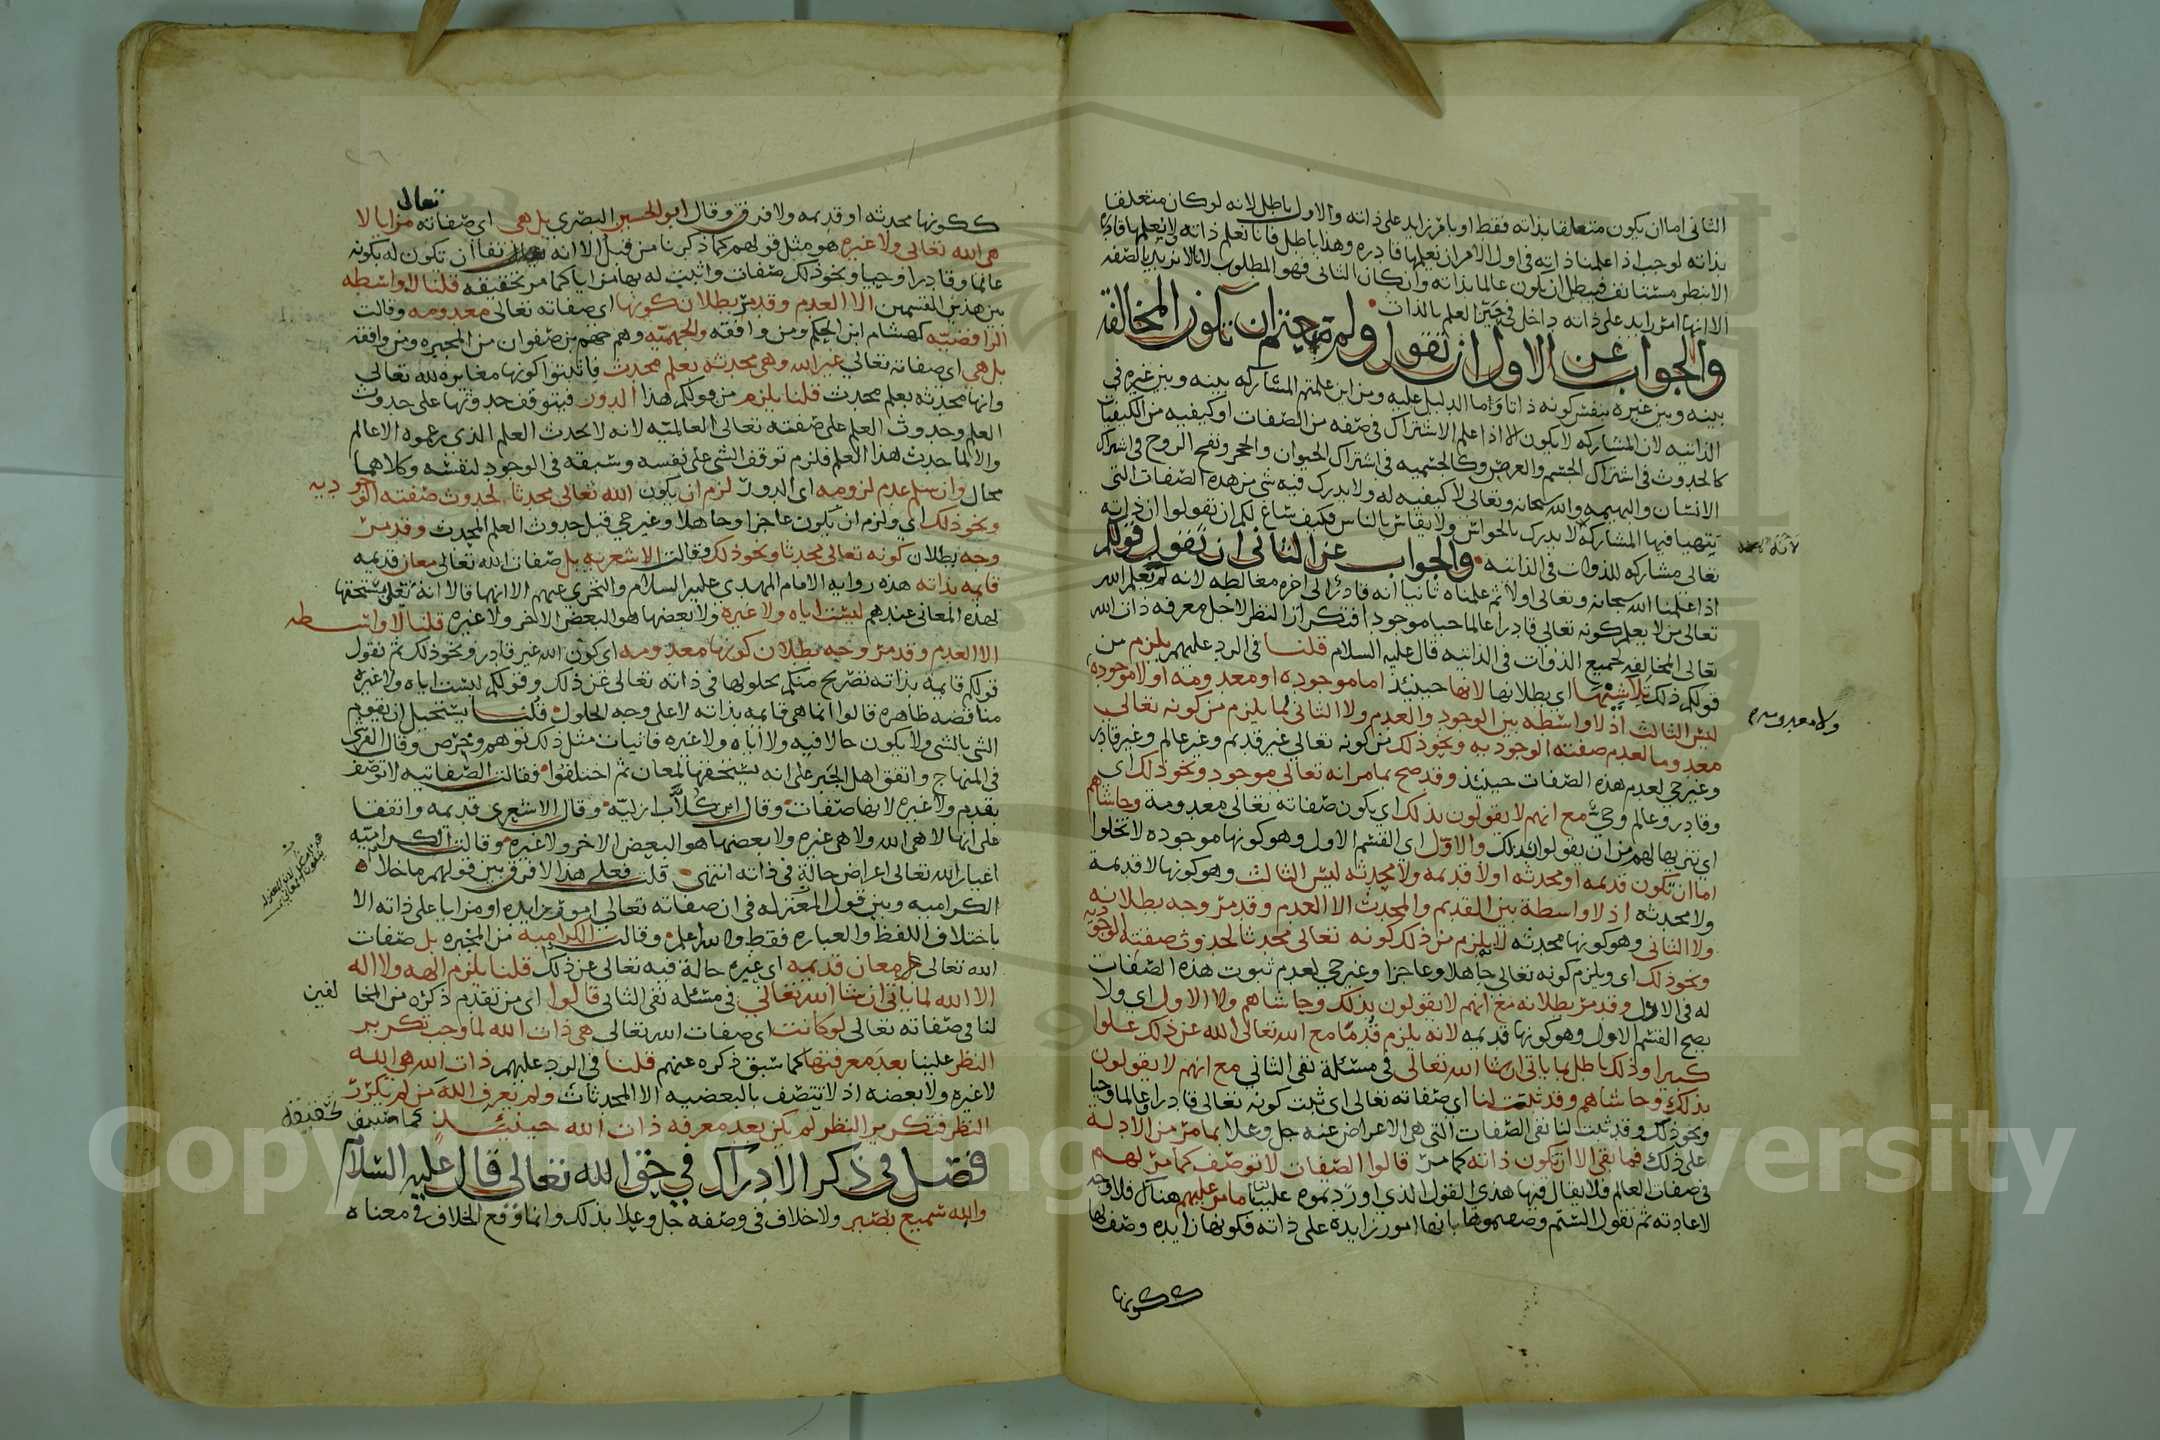 الثانى اما ان يكون متعلقا بذاته فقط او بامر زايد على ذاته والاول باطل لانه لو كان متعلقا
بذاته لوجب اذا علمنا ذاته فى اول الامر ان نعلمها قادره وهذا باطل فانا نعلم ذاته ولا نعلمها قادره
الا بنظر مستانف فبطل ان يكون عالما بذاته وان كان الثانى فهو المطلوب لانا لا نريد بالصفه
الا انها امر زايد على ذاته داخل فى حيز العلم بالذات
والجواب عن الاول ان نقول ولم منعتم ان تكون المخالفه
بينه وبين غيره بنفس كونه ذاتا وما الدليل عليه ومن اين علمتم المشاركه بينه وبين غيره فى
الذاتيه لان المشاركه لا يكون الا اذا علم الاشتراك فى صفه من الصفات او كيفيه من الكيفيات
كالحدوث فى اشتراك الجسم والعرض وكالجسميه فى اشتراك الحيوان والحجر ونفخ الروح فى اشتراك
الانسان والبهيمه والله سبحانه وتعالى لا كيفيه له ولا يدرك فيه شى من هذه الصفات التى
يتهيا فيها المشاركه لا يدرك بالحواس ولا يقاس بالناس فكيف ساغ لكم ان تقولوا ان ذاته
تعالى مشاركه للذوات فى الذاتيه والجواب عن الثانى ان نقول قولكم
اذا علمنا الله سبحانه وتعالى اولا ثم علمناه ثانيا انه قادر الى اخره مغالطه لانه لم يعلم الله
تعالى من لا يعلم كونه تعالى قادرا عالما حيا موجودا فتكرار النظر لاجل معرفه ذات الله
تعالى المخالفه لجميع الذوات فى الذاتيه قال عليه السلام قلنا فى الرد عليهم يلزم من
قولكم ذلك تلاشيها اى بطلانها لانها حينئذ اما موجوده او معدومه او لا موجوده
ولا معدومه
ليس الثالث اذ لا واسطه بين الوجود والعدم ولا الثانى لما يلزم من كونه تعالى
معدوما لعدم صفته الوجوديه ونحو ذلك من كونه تعالى غير قديم وغير عالم وغير قادر
وغير حى لعدم هذه الصفات حينئذ وقد صح بما مر انه تعالى موجود ونحو ذلك اى
وقادر وعالم وحى مع انهم لا يقولون بذلك اى بكون صفاته تعالى معدومة وحاشاهم
اى تنزيها لهم من ان يقولوا بذلك والاول اى القسم الاول وهو كونها موجوده لا تخلوا
اما ان تكون قديمه او محدثه او لا قديمه ولا محدثه ليس الثالث وهو كونها لا قديمة
ولا محدثه اذ لا واسطة بين القديم والمحدث الا العدم وقد مر وجه بطلانه
ولا الثانى وهو كونها محدثه لما يلزم من ذلك كونه تعالى محدثا لحدوث صفته الوجوديه
ونحو ذلك اى ويلزم كونه تعالى جاهلا وعاجزا وغير حى لعدم ثبوت هذه الصفات
له فى الازل وقد مر بطلانه مع انهم لا يقولون بذلك وحاشاهم ولا الاول اى ولا
يصح القسم الاول وهو كونها قديمه لانه يلزم قدما مع الله تعالى الله عن ذلك علوا
كبيرا وذلك باطل بما ياتى ان شا الله تعالى فى مسئلة نفى الثانى مع انهم لا يقولون
بذلك وحاشاهم وقد ثبتت لنا اى صفاته تعالى اى ثبت كونه تعالى قادرا وعالما وحيا
ونحو ذلك وقد ثبت لنا نفى الصفات التى هى الاعراض عنه جل وعلا بما مر من الادلة
على ذلك فما بقى الا ان تكون ذاته كما مر قالوا الصفات لا توصف كما مر لهم
فى صفات العالم فلا يقال فيها هذا القول الذى اوردتموه علينا قلنا ما مر عليهم هناك فلا وجه
لاعادته ثم نقول الستم وصفتموها بانها امور زايده على ذاته فكونها زايده وصف لها
ككونها
ككونها محدثه او قديمه ولا فرق وقال ابو الحسين البصرى بل هى اى صفاته تعالى مزايا لا
هى الله تعالى ولا غيره هو مثل قولهم كما ذكرنا من قبل الا انه نفا ان تكون له بكونه
عالما وقادرا وحيا ونحو ذلك صفات واثبت له بها مزايا كما مر تحقيقه قلنا لا واسطه
بين هذين القسمين الا العدم وقد مر بطلان كونها اى صفاته تعالى معدومه وقالت
الرافضيه كهشام ابن الحكم ومن وافقه والجهميه وهم جهم بن صفوان من المجبره ومن وافقه
بل هى اى صفاته تعالى غير الله وهى محدثه بعلم محدث فاثبتوا كونها مغايره لله تعالى
وانها محدثه بعلم محدث قلنا يلزم من قولكم هذا الدور فيتوقف حدوثها على حدوث
العلم وحدوث العلم على صفته تعالى العالميه لانه لا يحدث العلم الذى زعموه الا عالم
والا لما حدث هذا العلم فلزم توقف الشى على نفسه وسبقه فى الوجود لنفسه وكلاهما
محال وان سلم عدم لزومه اى الدور لزم ان يكون الله تعالى محدثا لحدوث صفته الوجوديه
ونحو ذلك اى ولزم ان يكون عاجزا وجاهلا وغير حى قبل حدوث العلم المحدث وقد مر
وجه بطلان كونه تعالى محدثا ونحو ذلك وقالت الاشعريه بل صفات الله تعالى معان قديمه
قايمه بذاته هذه روايه الامام المهدى عليه السلام والنجرى عنهم الا انهما قالا انه تعالى يستحقها
لهذه المعانى عندهم ليست اياه ولا غيره ولا بعضها هو البعض الاخر ولا غيره قلنا لا واسطه
الا العدم وقد مر وجه بطلان كونها معدومه اى كون الله غير قادر ونحو ذلك ثم نقول
قولكم قايمه بذاته تصريح منكم بحلولها فى ذاته تعالى عن ذلك وقولكم ليست اياه ولا غيره
مناقضه ظاهره قالوا انما هى قايمه بذاته لا على وجه الحلول قلنا يستحيل ان يقوم
الشى بالشى ولا يكون حالا فيه ولا اياه ولا غيره فاثبات مثل ذلك توهم وتخرص وقال القرشى
فى المنهاج واتفق اهل الجبر على انه يستحقها لمعان ثم اختلفوا فقالت الصفاتيه لا توصف
بقدم ولا غيره لانها صفات وقال ابن كلاب ازليه وقال الاشعرى قديمه واتفقا
على انها لا هى الله ولا هى غيره ولا بعضها هو البعض الاخر ولا غيره وقالت الكراميه
اغيار الله تعالى اعراض حالة فى ذاته انتهى قلت فعلى هذا لا فرق بين قولهم ما خلا
الكراميه وبين قول المعتزله فى ان صفاته تعالى امور زايده او مزايا على ذاته الا
باختلاف اللفظ والعباره فقط والله اعلم وقالت الكرامية من المجبره بل صفات
الله تعالى معان قديمه اى غيره حالة فيه تعالى عن ذلك قلنا يلزم الهه ولا اله
الا الله لما ياتى ان شا الله تعالى فى مسئله نفى الثانى قالوا اى من تقدم ذكره من المخا
لفين
لنا فى صفاته تعالى لو كانت اى صفات الله تعالى هى ذات الله لما وجب تكرير
النظر علينا بعد معرفتها كما سبق ذكره عنهم قلنا فى الرد عليهم ذات الله هى الله
لا غيره ولا بعضه اذ لا يتصف بالبعضيه الا المحدثات ولم يعرف الله من لم يكرر
النظر فتكرير النظر لم يكن بعد معرفه ذات الله حينئذ كما سبق تحقيقه
فصل فى ذكر الادراك فى حق الله تعالى قال عليه السلام
والله سميع بصير ولا خلاف فى وصفه جل وعلا بذلك وانما وقع الخلاف فى معناه
Copyright © King University